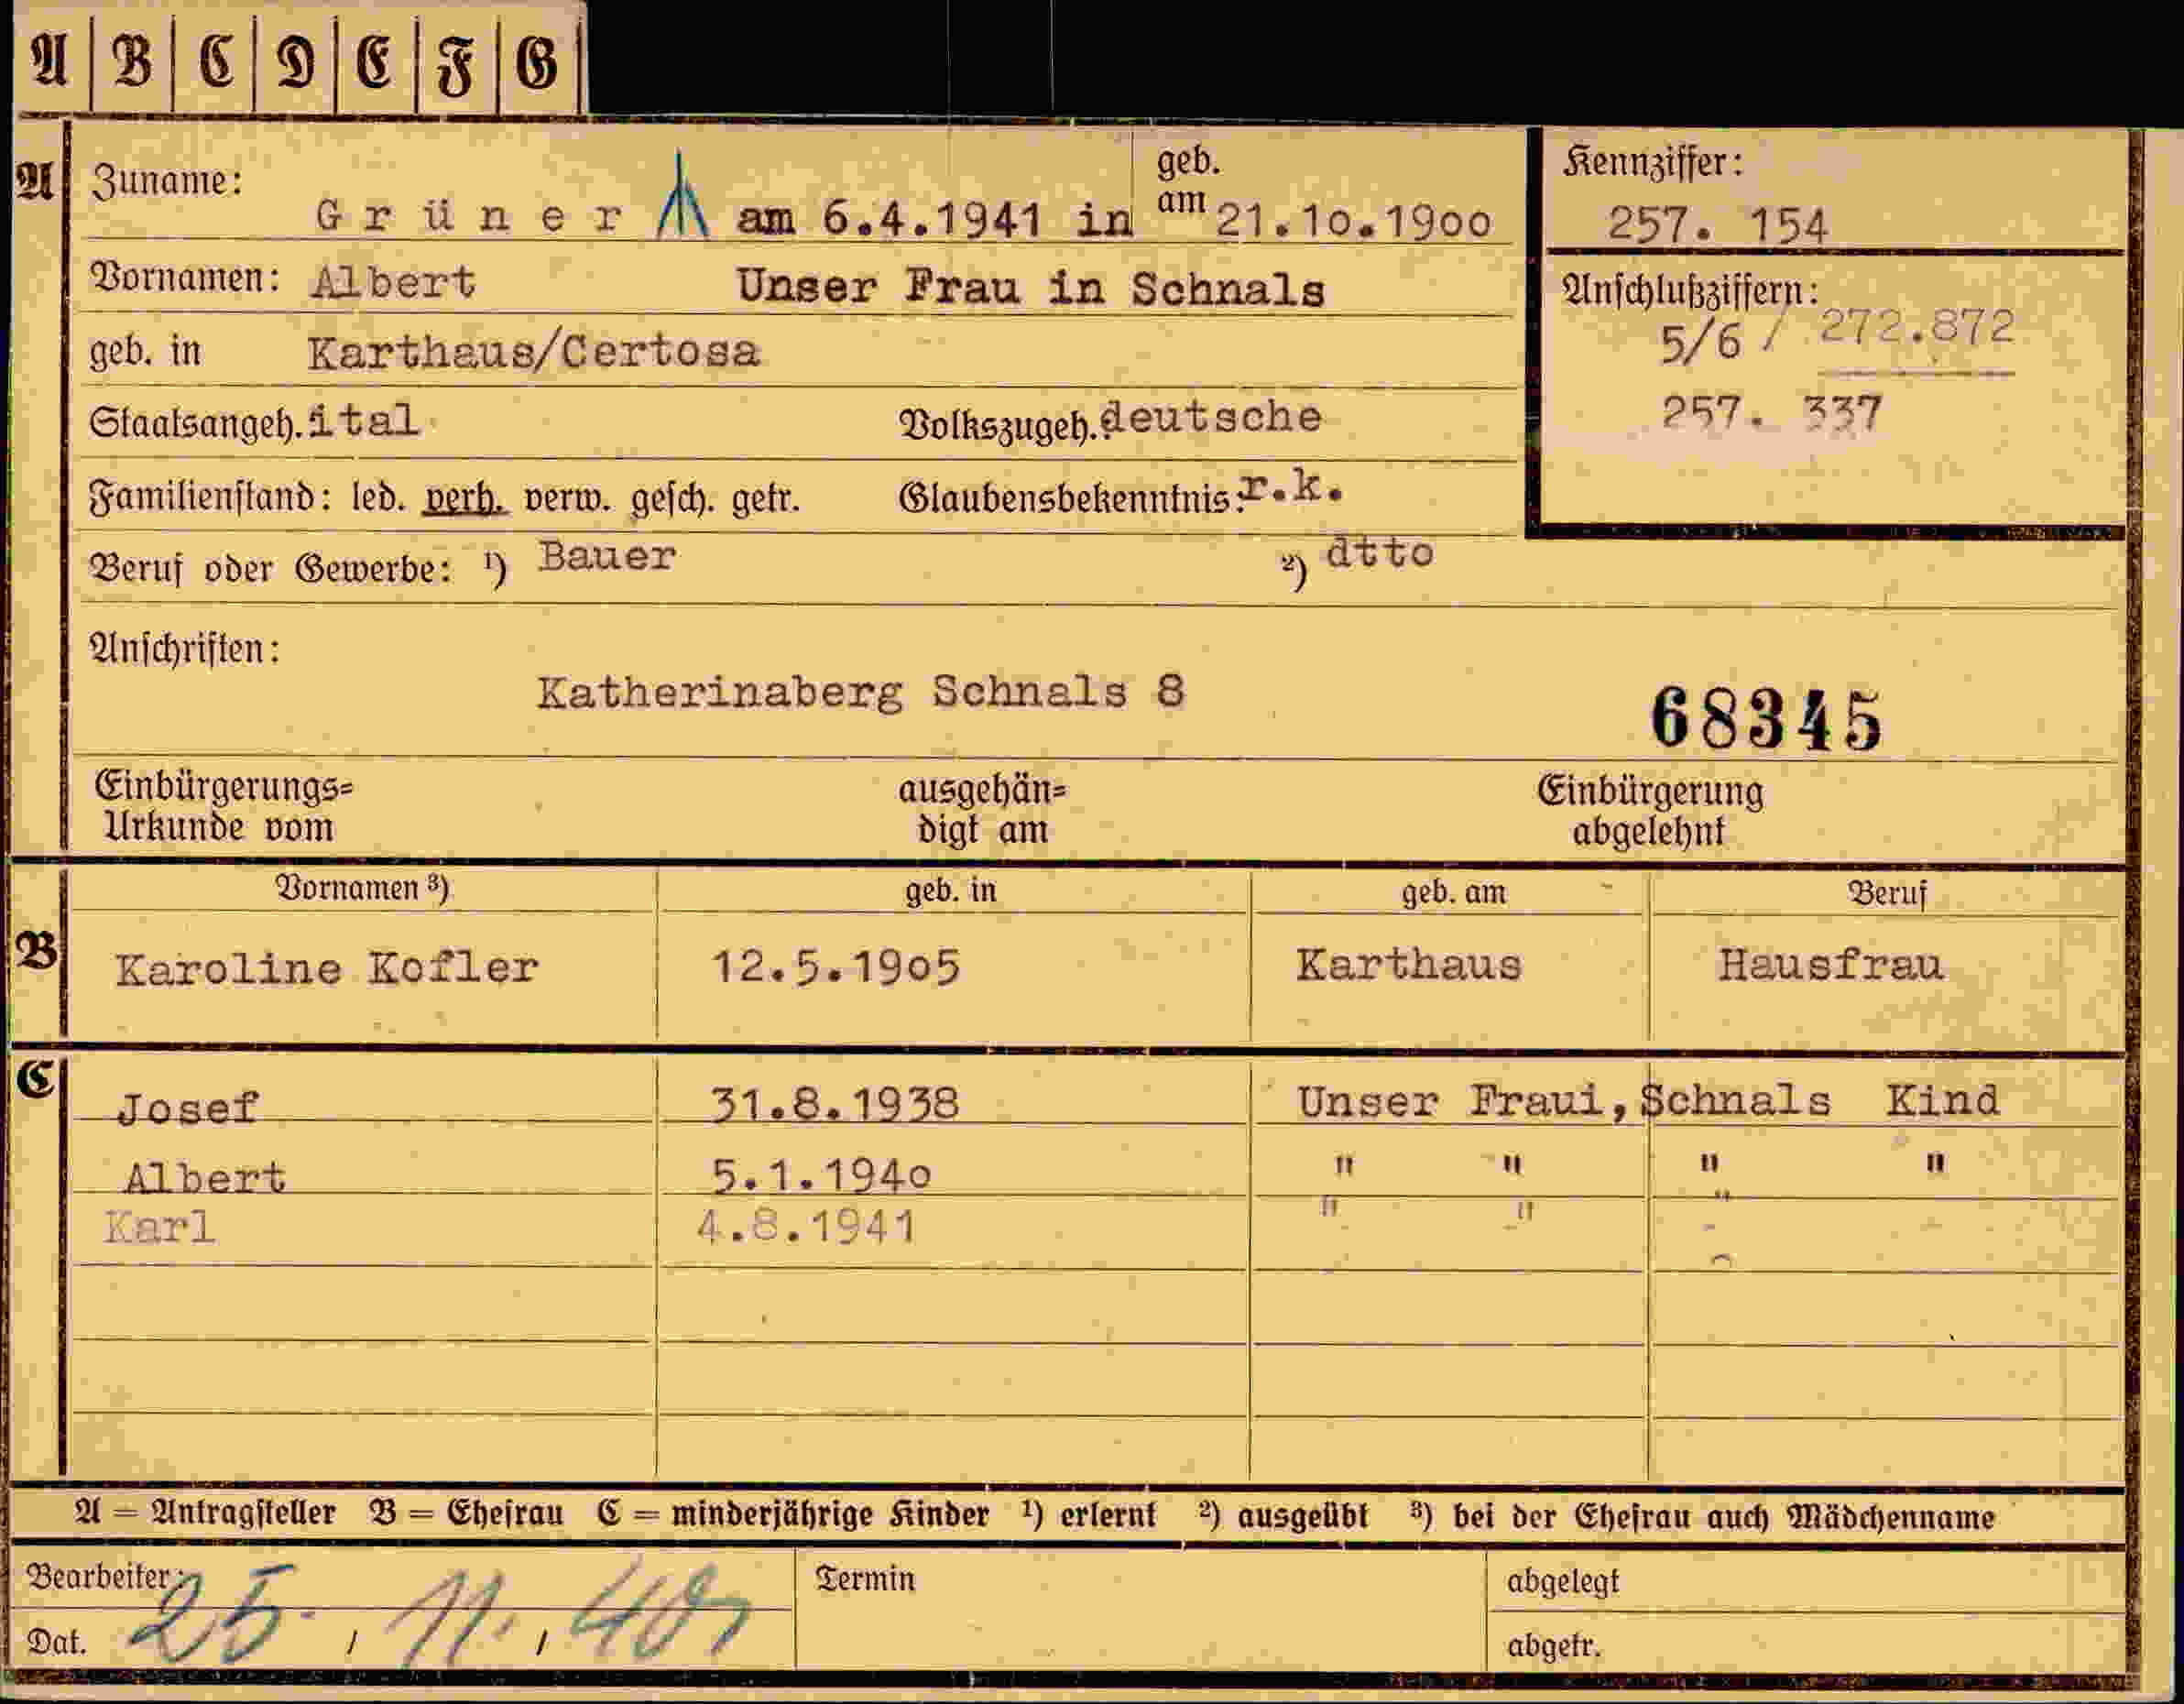 A B C D E F G
A Zuname: Grüner am 6.4.1941 in geb. am 21.10.1900
Kennziffer: 257. 154
Vornamen: Albert Unser Frau in Schnals
Anschlußziffern: 5/6 / 272.872
257. 337
geb. in Karthaus/Certosa
Staatsangeh. ital Volkszugeh. deutsche
Familienstand: led. verh. verw. gesch. getr. Glaubensbekenntnis: r.k.
Beruf oder Gewerbe: ¹) Bauer ²) dtto
Anschriften:
Katherinaberg Schnals 8 68345
Einbürgerungs= Urkunde vom ausgehän= digt am Einbürgerung abgelehnt
Vornamen ³) geb. in geb. am Beruf
B Karoline Kofler 12.5.1905 Karthaus Hausfrau
C Josef 31.8.1938 Unser Fraui,Schnals Kind
Albert 5.1.1940 " " " "
Karl 4.8.1941 " " "
A = Antragsteller B = Ehefrau C = minderjährige Kinder ¹) erlernt ²) ausgeübt ³) bei der Ehefrau auch Mädchenname
Bearbeiter: Termin abgelegt
Dat. 25. / 11. / 40 abgetr.